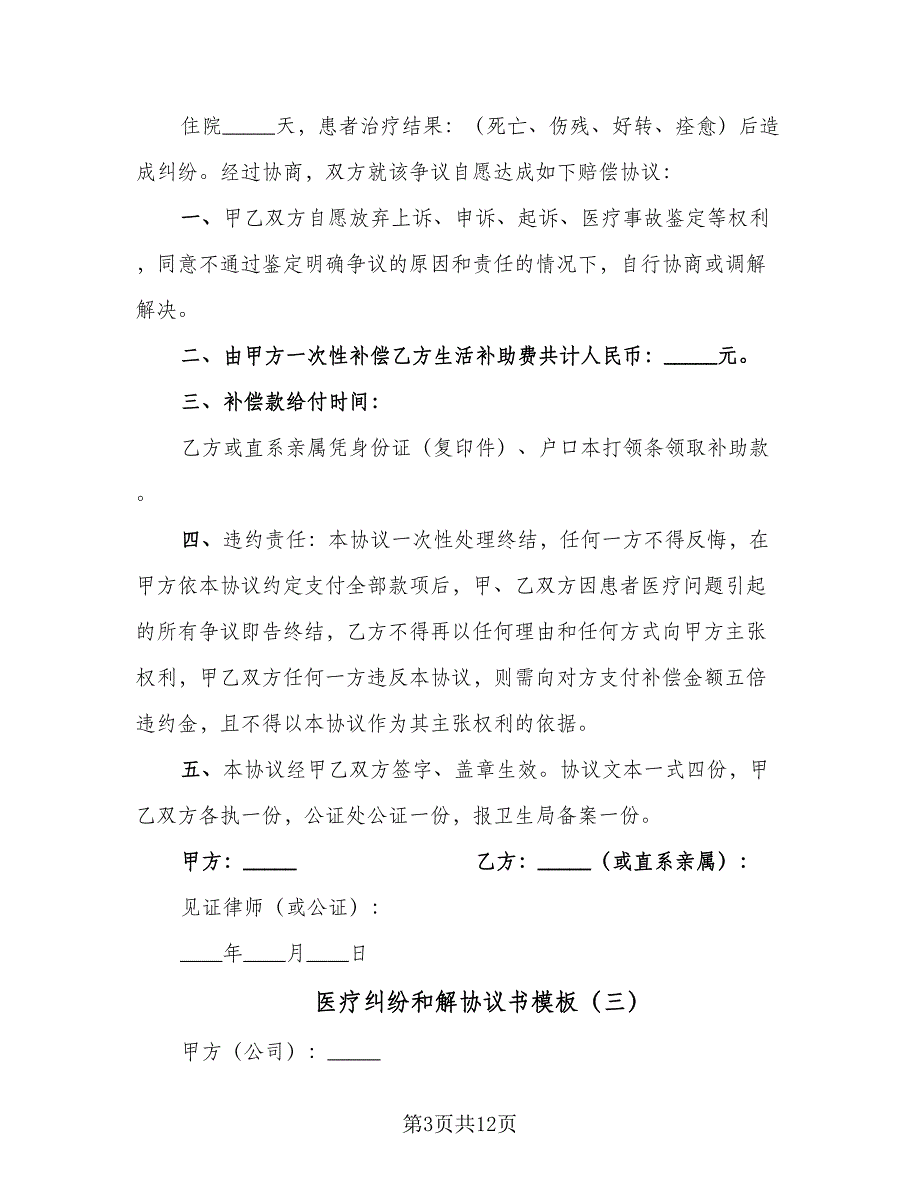 住院_____天，患者治疗结果：（死亡、伤残、好转、痊愈）后造
成纠纷。经过协商，双方就该争议自愿达成如下赔偿协议：
一、甲乙双方自愿放弃上诉、申诉、起诉、医疗事故鉴定等权利
，同意不通过鉴定明确争议的原因和责任的情况下，自行协商或调解
解决。
二、由甲方一次性补偿乙方生活补助费共计人民币：_____元。
三、补偿款给付时间：
乙方或直系亲属凭身份证（复印件）、户口本打领条领取补助款
。
四、违约责任：本协议一次性处理终结，任何一方不得反悔，在
甲方依本协议约定支付全部款项后，甲、乙双方因患者医疗问题引起
的所有争议即告终结，乙方不得再以任何理由和任何方式向甲方主张
权利，甲乙双方任何一方违反本协议，则需向对方支付补偿金额五倍
违约金，且不得以本协议作为其主张权利的依据。
五、本协议经甲乙双方签字、盖章生效。协议文本一式四份，甲
乙双方各执一份，公证处公证一份，报卫生局备案一份。
甲方：_____ 乙方：_____（或直系亲属）：
见证律师（或公证）：
____年____月____日
医疗纠纷和解协议书模板（三）
甲方（公司）：_____
第3页共12页